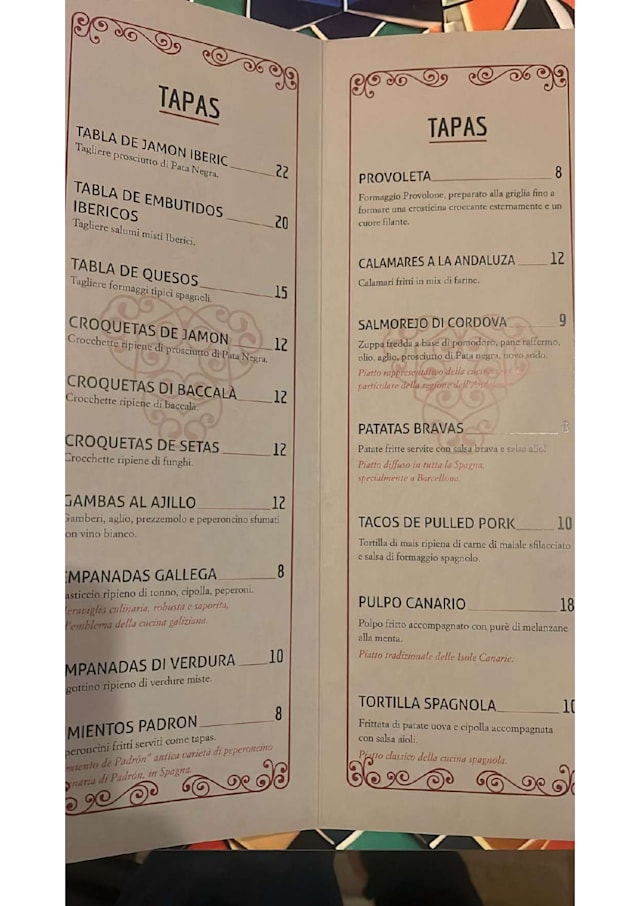 TAPAS
TABLA DE JAMON IBERIC 22
Tagliere prosciutto di Pata Negra.
TABLA DE EMBUTIDOS
IBERICOS 20
Tagliere salumi misti Iberici.
TABLA DE QUESOS 15
Tagliere formaggi tipici spagnoli.
CROQUETAS DE JAMON 12
Crocchette ripiene di prosciutto di Pata Negra.
CROQUETAS DI BACCALÀ 12
Crocchette ripiene di baccalà.
CROQUETAS DE SETAS 12
Crocchette ripiene di funghi.
GAMBAS AL AJILLO 12
Gamberi, aglio, prezzemolo e peperoncino sfumati
con vino bianco.
MPANADAS GALLEGA 8
asticcio ripieno di tonno, cipolla, peperoni.
eraviglia culinaria, robusta e saporita,
l'emblema della cucina galiziana.
MPANADAS DI VERDURA 10
gottino ripieno di verdure miste.
MIENTOS PADRON 8
peroncini fritti serviti come tapas.
miento de Padrón" antica varietà di peperoncino
naria di Padrón, in Spagna.
TAPAS
PROVOLETA 8
Formaggio Provolone, preparato alla griglia fino a
formare una crosticina croccante esternamente e un
cuore filante.
CALAMARES A LA ANDALUZA 12
Calamari fritti in mix di farine.
SALMOREJO DI CORDOVA 9
Zuppa fredda a base di pomodoro, pane raffermo,
olio, aglio, prosciutto di Pata negra, uovo sodo.
Piatto rappresentativo della cucina
particolare della regione dell'
PATATAS BRAVAS
Patate fritte servite con salsa brava e salsa
Piatto diffuso in tutta la Spagna,
specialmente a Barcellona.
TACOS DE PULLED PORK 10
Tortilla di mais ripiena di carne di maiale sfilacciato
e salsa di formaggio spagnolo.
PULPO CANARIO 18
Polpo fritto accompagnato con purè di melanzane
alla menta.
Piatto tradizionale delle Isole Canarie.
TORTILLA SPAGNOLA 10
Frittata di patate uova e cipolla accompagnata
con salsa aioli.
Piatto classico della cucina spagnola.